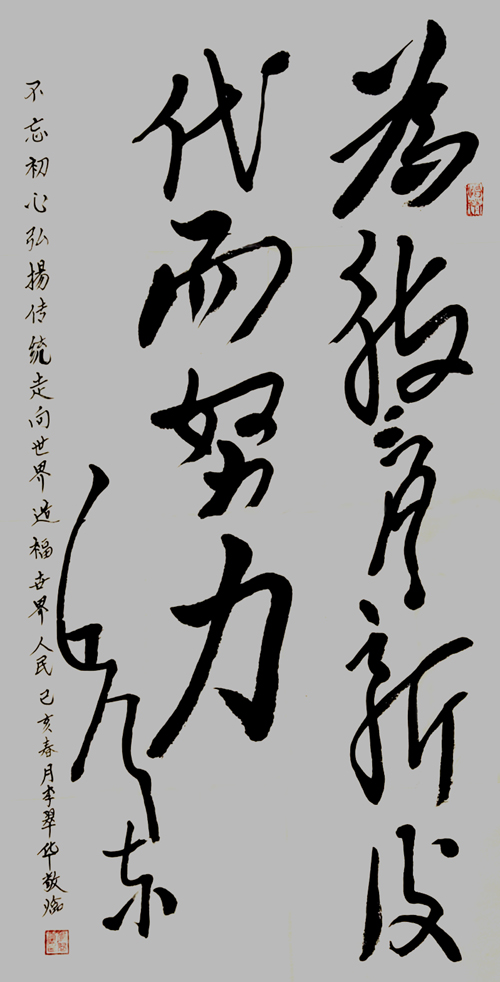 為教育新後
代而努力
毛泽东
不忘初心弘揚传统走向世界造福世界人民己亥春月李翠华敬临